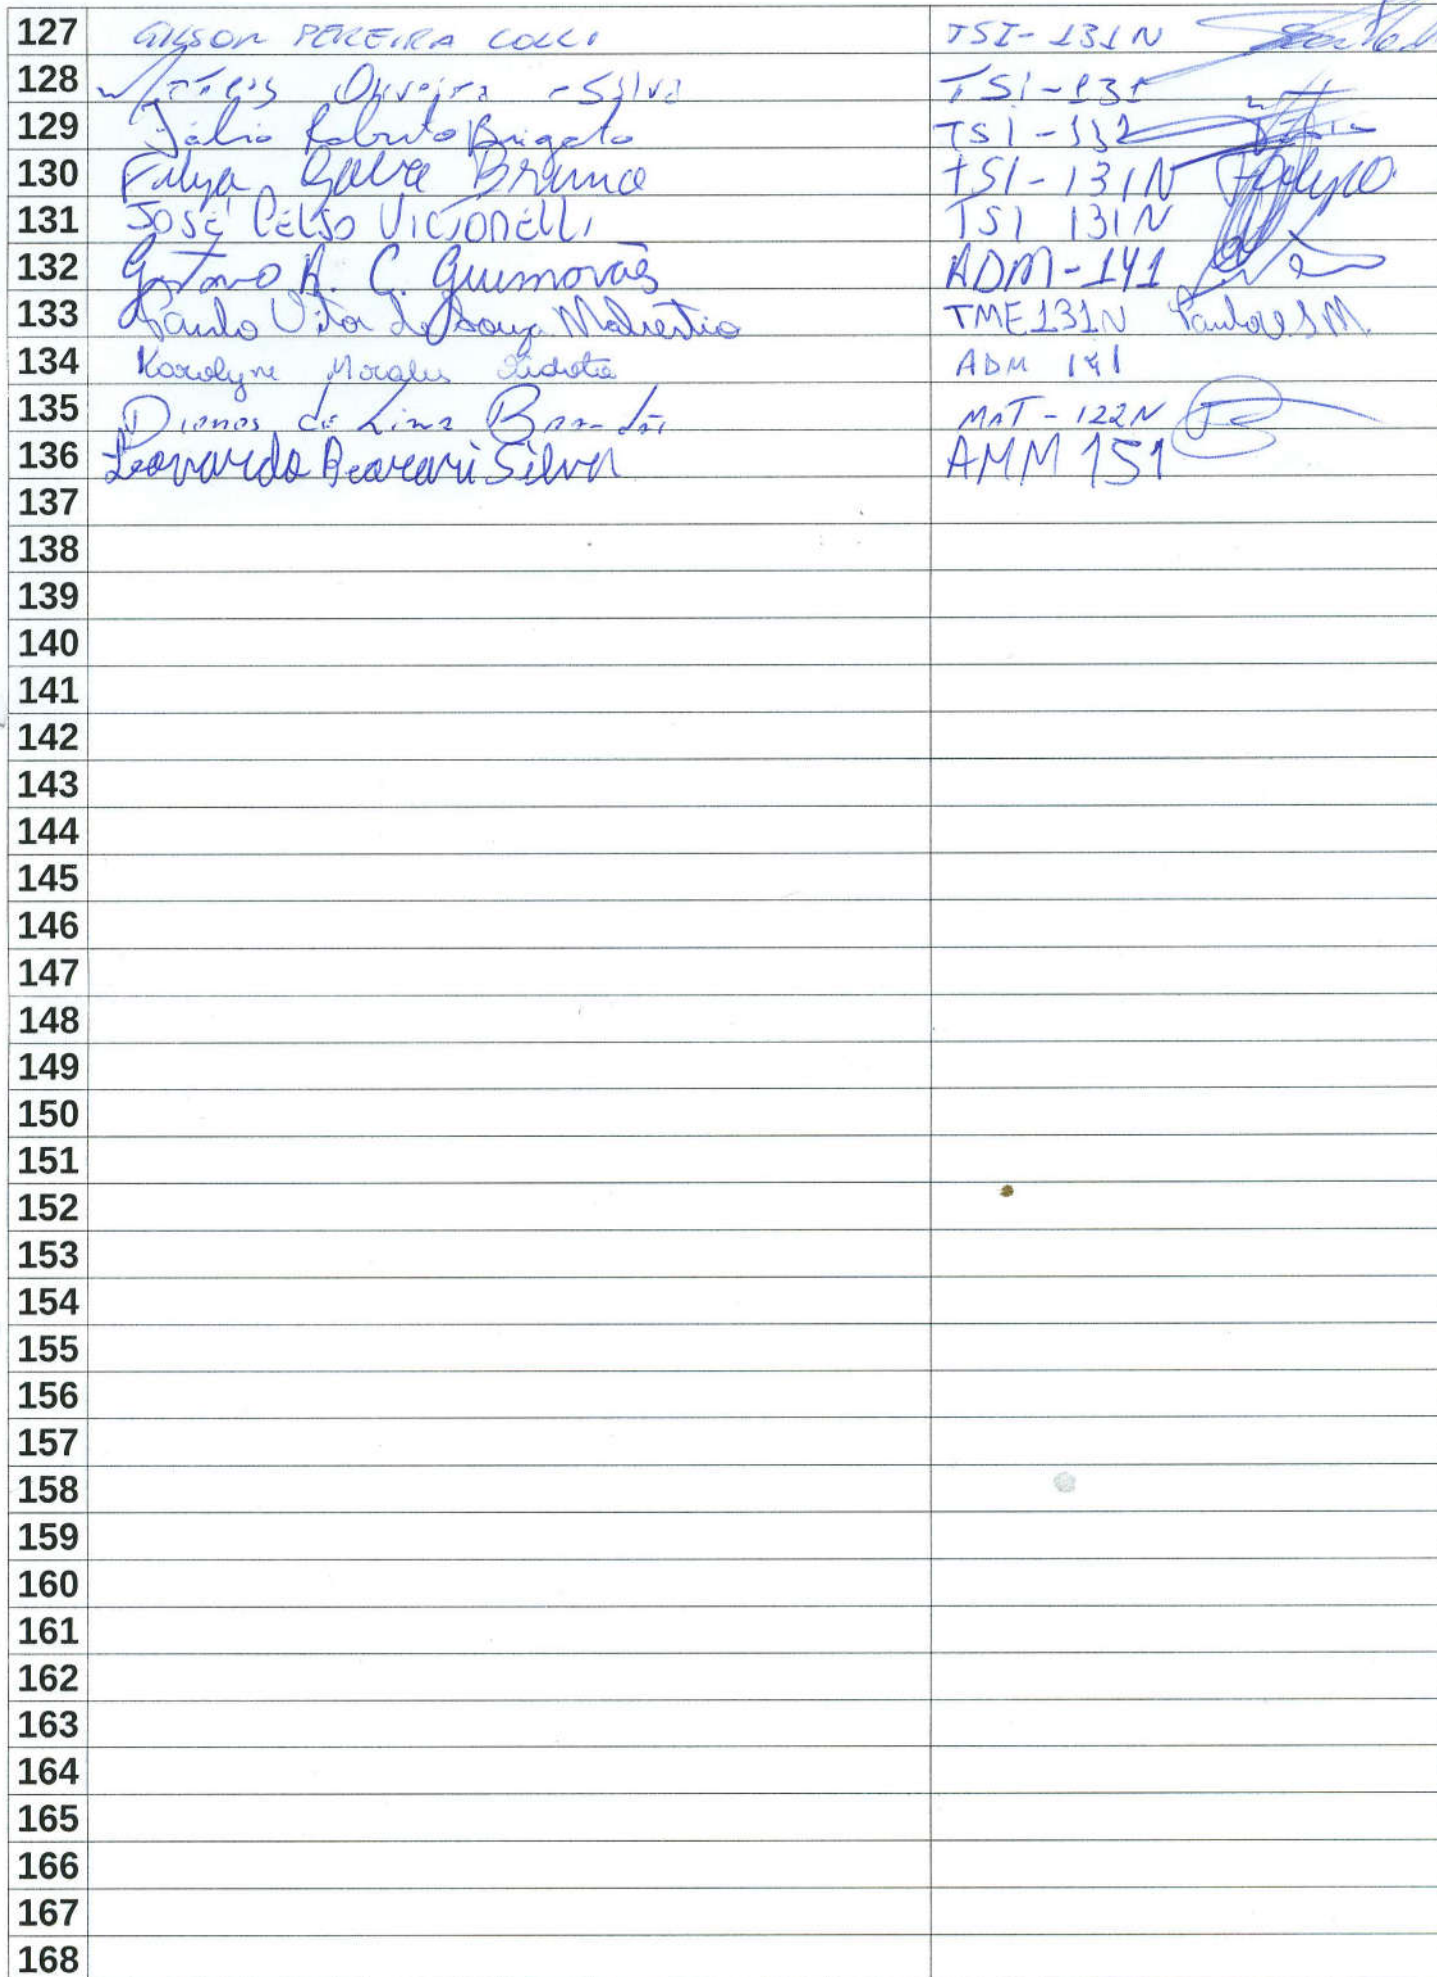 127 GILSON PEREIRA COLLI TSI-131N
128 Oliveira Silva TSI-131
129 Júlio Roberto Brigato TSI-131
130 Felype Galva Bruna TSI-131N
131 JOSÉ CELSO VICTORELLI TSI 131N
132 Gustavo A. C. Guimarães ADM-141
133 Paulo Vitor de Souza TME131N
134 Karolyne Morales ADM 141
135 de Lima Brandão MAT-122N
136 Leonardo Silva AMM 151
137
138
139
140
141
142
143
144
145
146
147
148
149
150
151
152
153
154
155
156
157
158
159
160
161
162
163
164
165
166
167
168